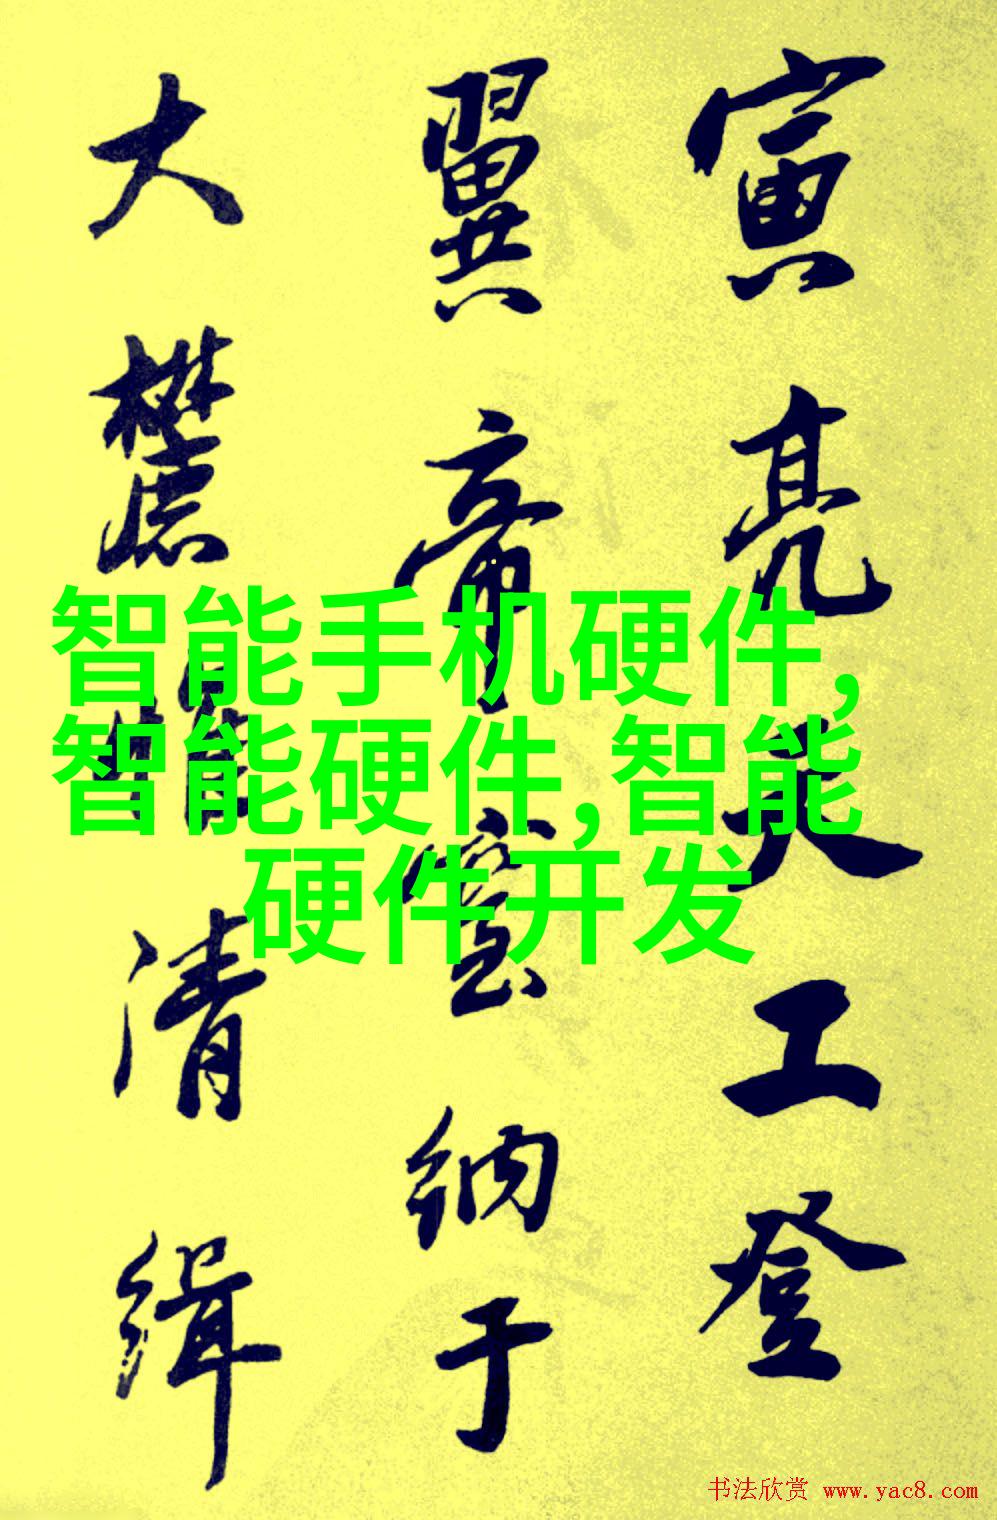 寅亮天工登
翼帝室纳于
大麓惟清缉
智能手机硬件,
智能硬件,智能
硬件开发
书法欣赏 www.yac8.com